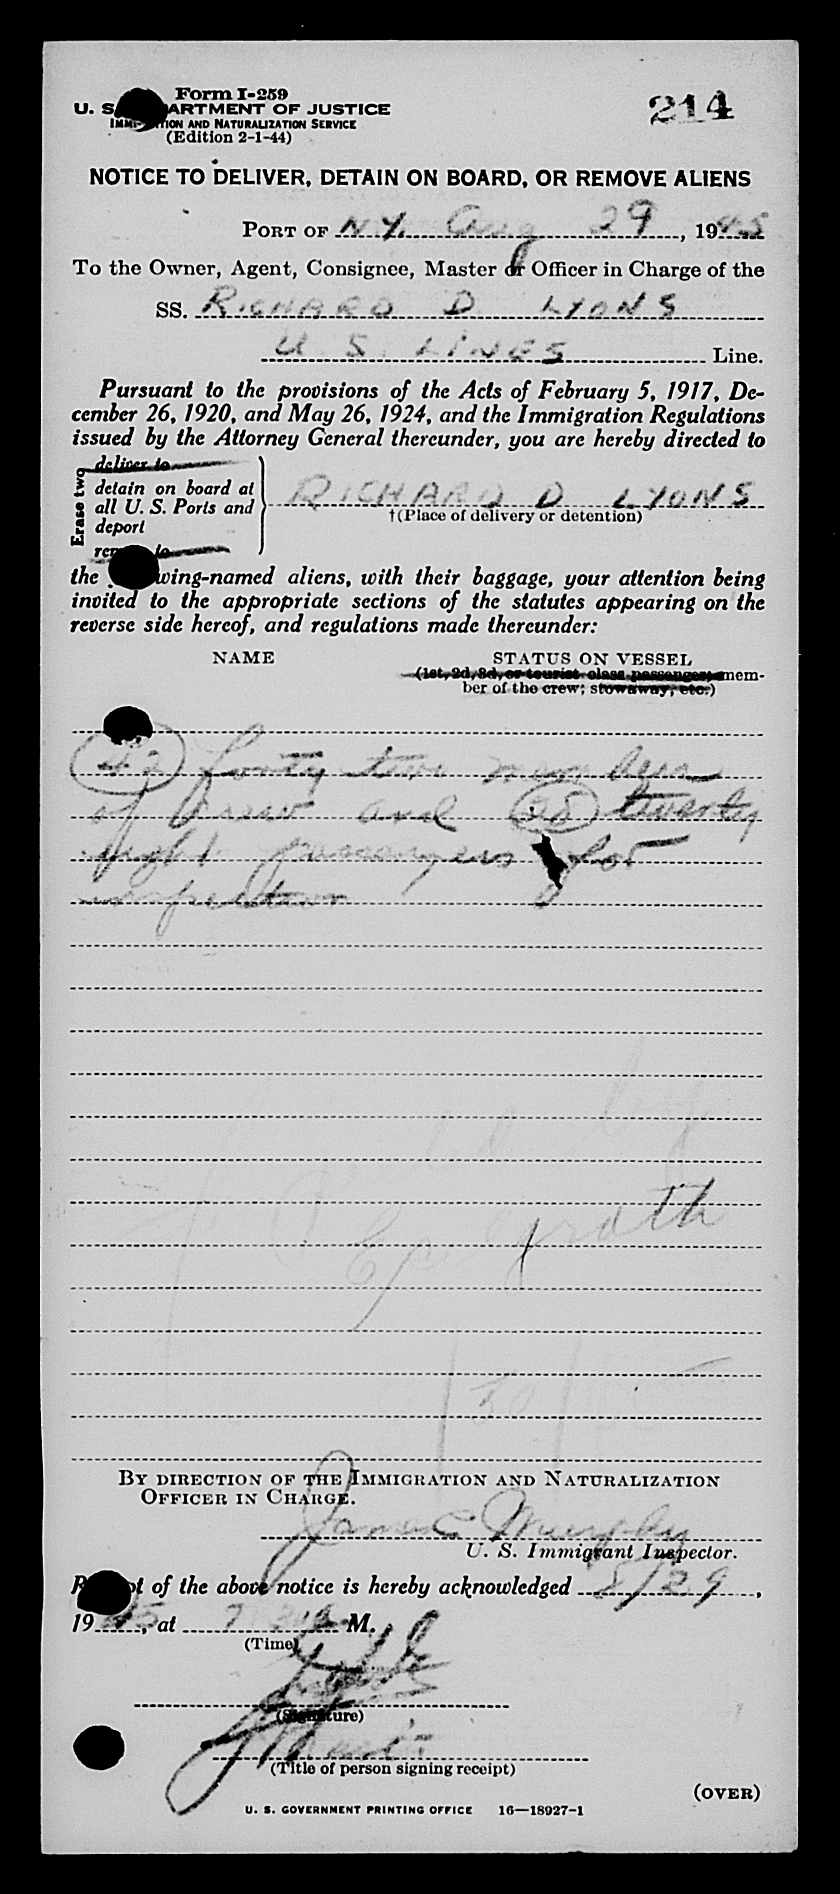 Form I-259
214
U. S. DEPARTMENT OF JUSTICE
IMMIGRATION AND NATURALIZATION SERVICE
(Edition 2-1-44)
NOTICE TO DELIVER, DETAIN ON BOARD, OR REMOVE ALIENS
PORT OF N.Y. Aug 29, 1945
To the Owner, Agent, Consignee, Master or Officer in Charge of the
SS. RICHARD D LYONS
U S LINES Line.
Pursuant to the provisions of the Acts of February 5, 1917, De-
cember 26, 1920, and May 26, 1924, and the Immigration Regulations
issued by the Attorney General thereunder, you are hereby directed to
Erase two
deliver to
detain on board at
all U. S. Ports and
deport
remove to
RICHARD D LYONS
†(Place of delivery or detention)
the following-named aliens, with their baggage, your attention being
invited to the appropriate sections of the statutes appearing on the
reverse side hereof, and regulations made thereunder:
NAME STATUS ON VESSEL
(1st, 2d, 3d, or tourist class passenger; mem-
ber of the crew; stowaway, etc.)
(42) forty two members
of crew and (28) twenty
eight passengers for
inspection
BY DIRECTION OF THE IMMIGRATION AND NATURALIZATION
OFFICER IN CHARGE.
James C Murphy
U. S. Immigrant Inspector.
Receipt of the above notice is hereby acknowledged 8/29,
1945, at M.
(Time)
(Signature)
(Title of person signing receipt)
(OVER)
U. S. GOVERNMENT PRINTING OFFICE 16—18927-1